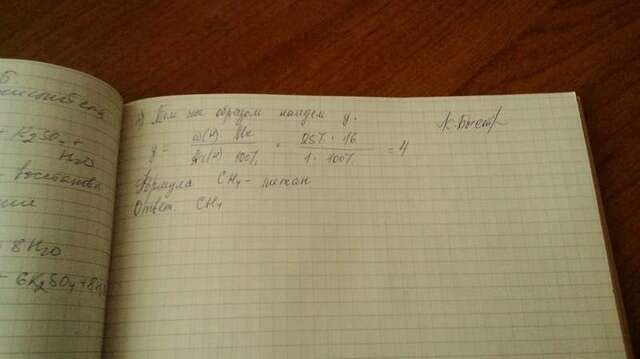 б
+ K2SO4 +
H2O
- восстанов
ние
= 8 H2O
+ 6K2SO4 + 8H2
Там же образом найдем y.
y = ω(н) · Mr / Ar(н) · 100% = 25% · 16 / 1 · 100% = 4
Формула CH4 - метан
Ответ. CH4